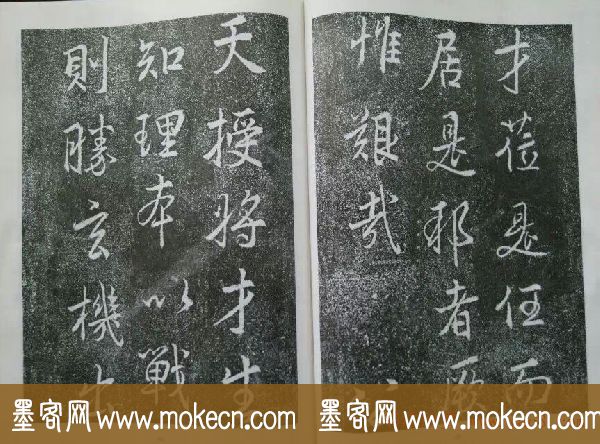 才莅是任而
居是邦者厥
惟艱哉
天授將才生
知理本以戰
則勝玄機
墨客网 www.mokecn.com 墨客网 www.mokecn.com